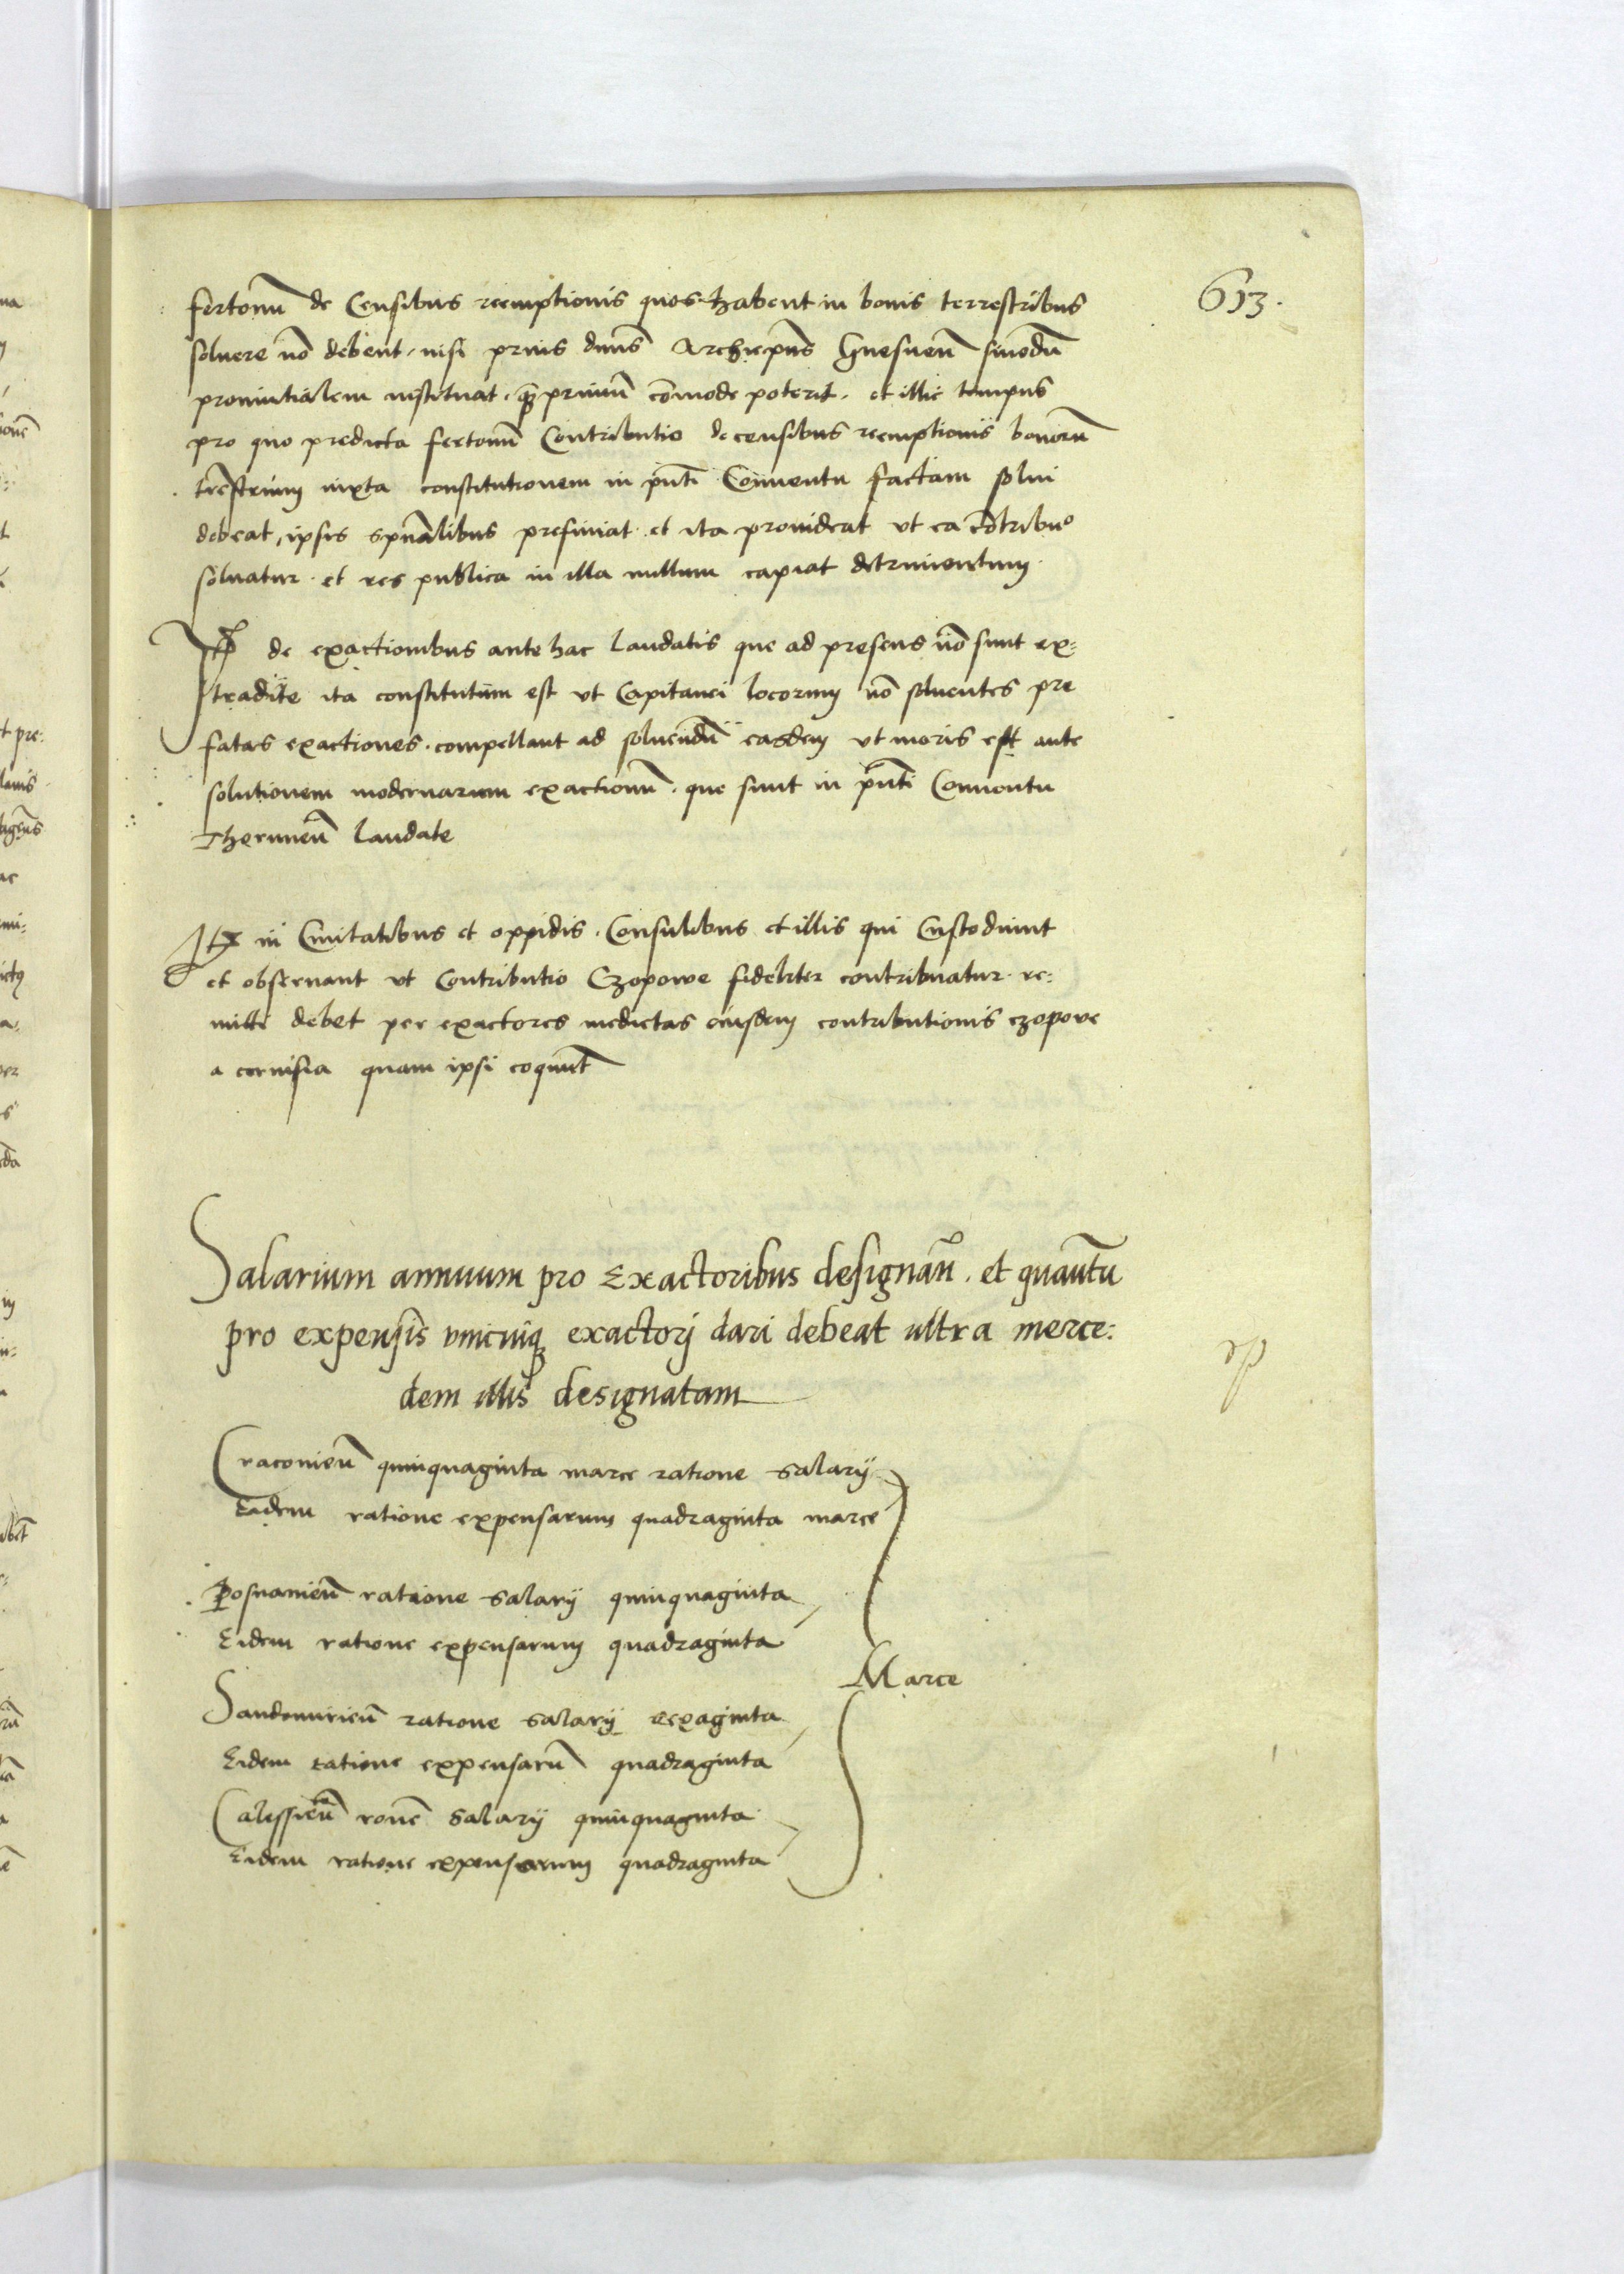 613.
fertonū de Censibus reemptionis quos habent in bonis terrestribus
soluere nō debent, nisi prius dnūs Archiepūs Gnesneñ sinodū
prouintialem instituat. q̄primū cōmode poterit. et illic tempus
pro quo predicta fertonū Contributio de censibus reemptionis bonorū
trēstrium iuxta constitutionem in pn̄ti Conuentu factam solui
debeat, ipsis spūalibus prefiniat. et ita prouideat vt ea cōtribuᵒ
soluatur. et res publica in illa nullum capiat detrimentum.
Itē de exactionibus ante hac laudatis que ad presens nō sunt ex=
tradite ita constitutum est vt Capitanei locorum nō soluentes pre
fatas exactiones. compellant ad soluendū easdem vt moris est ante
solutionem modernarum exactionū. que sunt in pn̄ti Conuentu
Thoruneñ laudate
Itē in Ciuitatibus et oppidis. Consulibus et illis qui Custodiunt
et obseruant vt Contributio Czopowe fideliter contribuatur. re=
mitti debet per exactores medietas eiusdem contributionis czopove
a ceruisia quam ipsi coquūt
Salarium annuum pro Exactoribus designañ. et quantū
pro expensis vnicuiqȝ exactorj dari debeat ultra merce:
dem illis designatam
Cracouieñ quinquaginta marce ratione salarij
Eidem ratione expensarum quadraginta marce
Posnanieñ ratione salarij quinquaginta
Eidem ratione expensarum quadraginta
Marce
Sandomirieñ ratione salarij sexaginta
Eidem ratione expensarū quadraginta
Calissieñ ronē salarij quinquaginta
Eidem ratione expensarum quadraginta